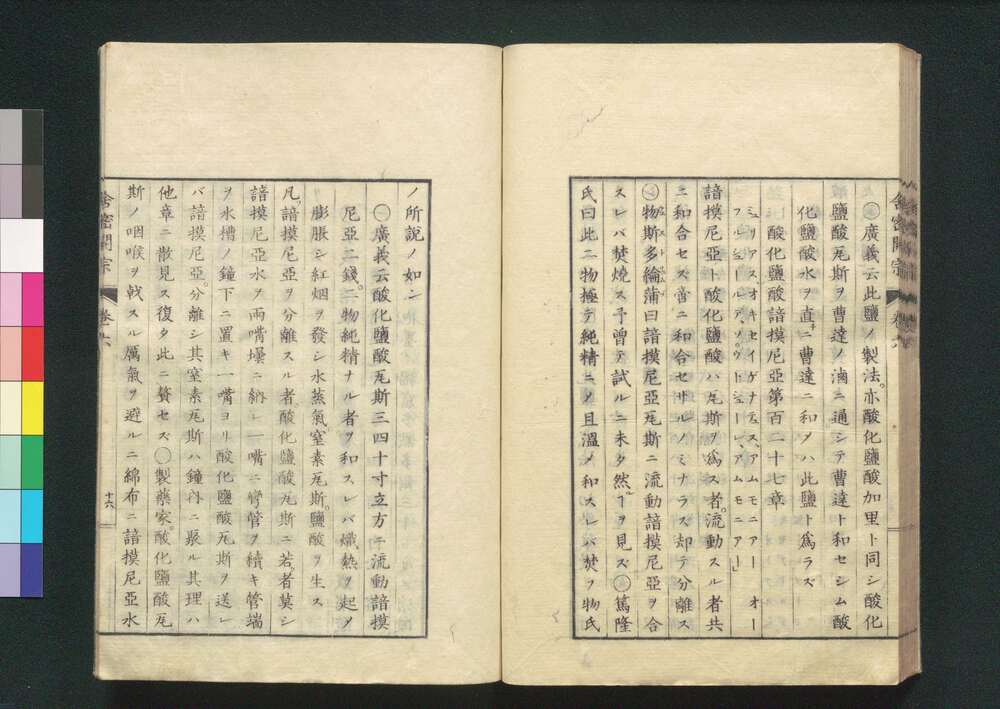 舎密開宗
巻六
廣義云此鹽ノ製法。亦酸化鹽酸加里ト同シ酸化
鹽酸瓦斯ヲ曹達ノ滷ニ通シテ曹達ト和セシム酸
化鹽酸水ヲ直ニ曹達ニ和メハ此鹽ト爲ラズ
酸化鹽酸諳摸尼亞第百二十七章
ミュリアス、オキセイゲナテュス、アムモニアー オー
フルシュールデ、ソウトシュールレ、アムモニアー」
諳摸尼亞ノ酸化鹽酸ハ瓦斯ヲ爲ス者。流動スル者共
ニ和合セス啻ニ和合セサルノミナラズ却テ分離ス
物斯多綸蒲曰諳摸尼亞瓦斯ニ流動諳摸尼亞ヲ合
スレバ焚燒ス予曽テ試ルニ未タ然ルヿヲ見ズ篤隆
氏曰此二物極テ純精ニメ且溫メ和スレバ焚ヲ物氏
ノ所説ノ如シ
㊀廣義云酸化鹽酸瓦斯三四十寸立方ニ流動諳摸
尼亞二錢。二物純精ナル者ヲ和スレバ熾熱ヲ起メ
膨脹シ紅烟ヲ發シ水蒸氣。窒素瓦斯。鹽酸ヲ生ス
凡。諳摸尼亞ヲ分離スル者。酸化鹽酸瓦斯ニ若者莫シ
諳摸尼亞水ヲ兩嘴壜ニ納レ一嘴ニ彎管ヲ續キ管端
ヲ水槽ノ鐘下ニ置キ一嘴ヨリ酸化鹽酸瓦斯ヲ送レ
バ諳摸尼亞。分離シ其窒素瓦斯ハ鐘内ニ聚ル其理ハ
他章ニ散見ス復タ此ニ贅セズ○製藥家。酸化鹽酸瓦
斯ノ咽喉ヲ戟スル厲氣ヲ避ルニ綿布ニ諳摸尼亞水
舎密開宗
巻六
十六